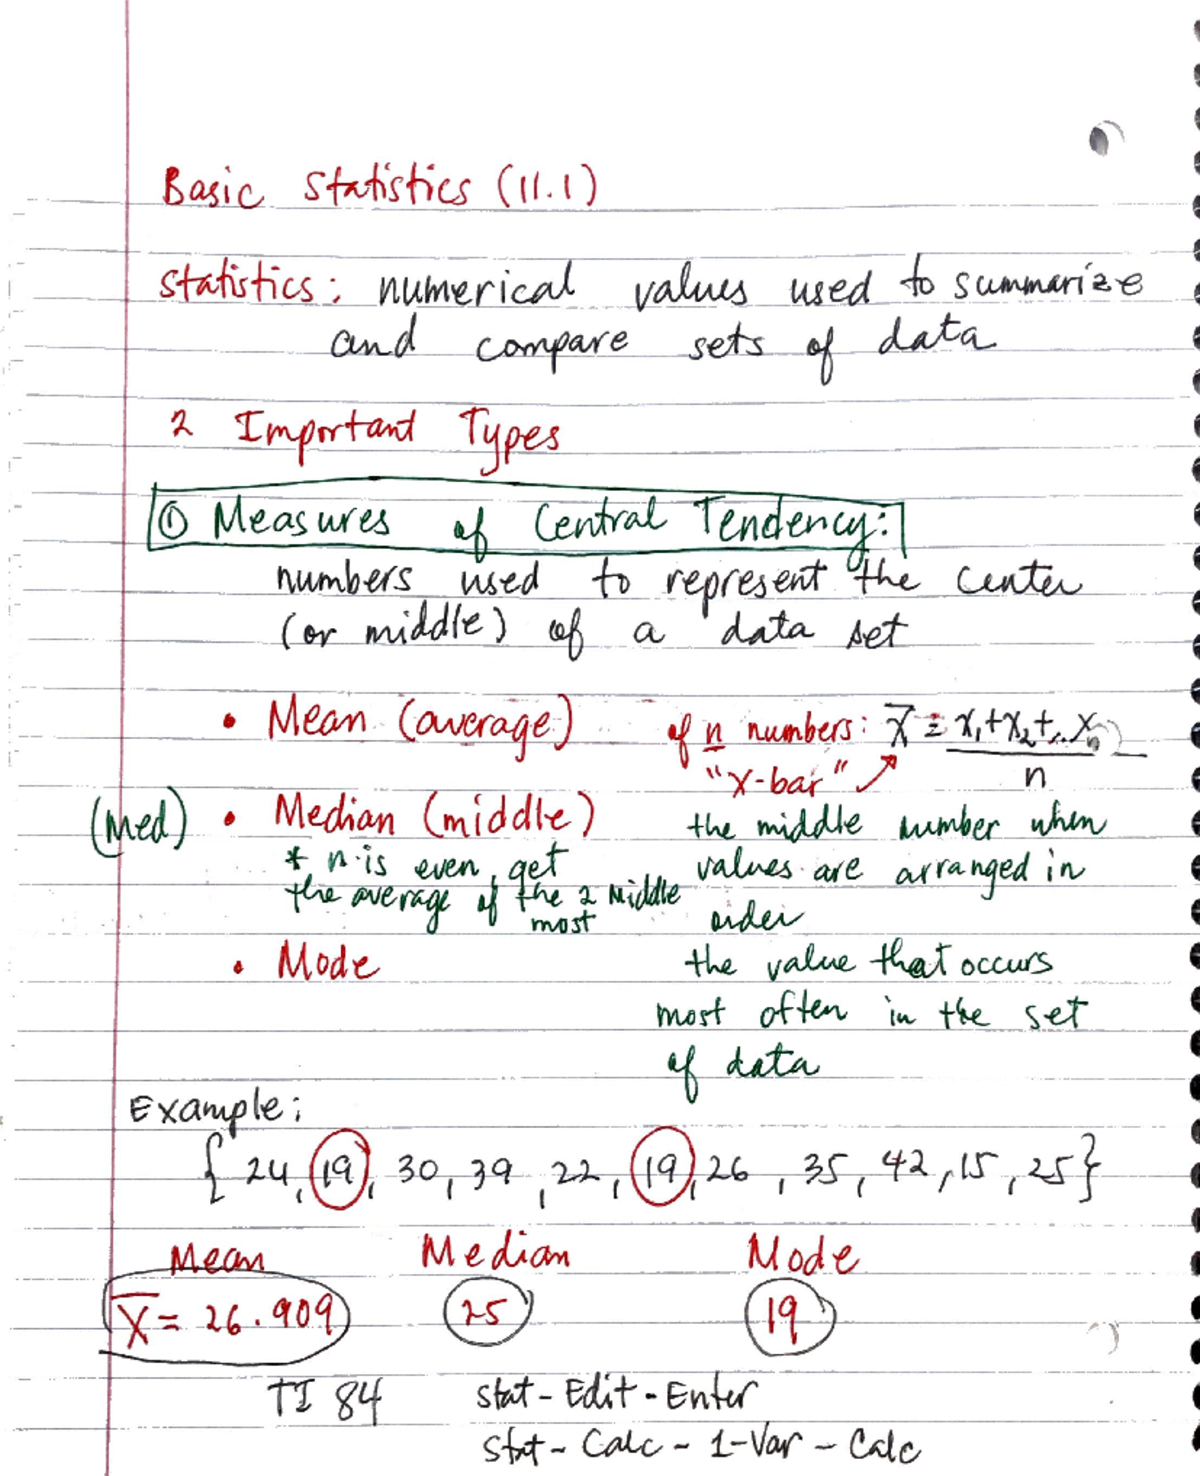 Basic Statistics (11.1)
Statistics: numerical values used to summarize
and compare sets of data
2 Important Types
① Measures of Central Tendency:
numbers used to represent the center
(or middle) of a data set
• Mean (average) of n numbers: x̄ = x₁+x₂+...xₙ / n
"x-bar"
(Med) • Median (middle) the middle number when
* n is even, get values are arranged in
the average of the 2 middle order
most
• Mode the value that occurs
most often in the set
of data
Example:
{ 24, 19, 30, 39, 22, 19, 26, 35, 42, 15, 25}
Mean Median Mode
x̄ = 26.909 25 19
TI 84 Stat - Edit - Enter
Stat - Calc - 1-Var - Calc